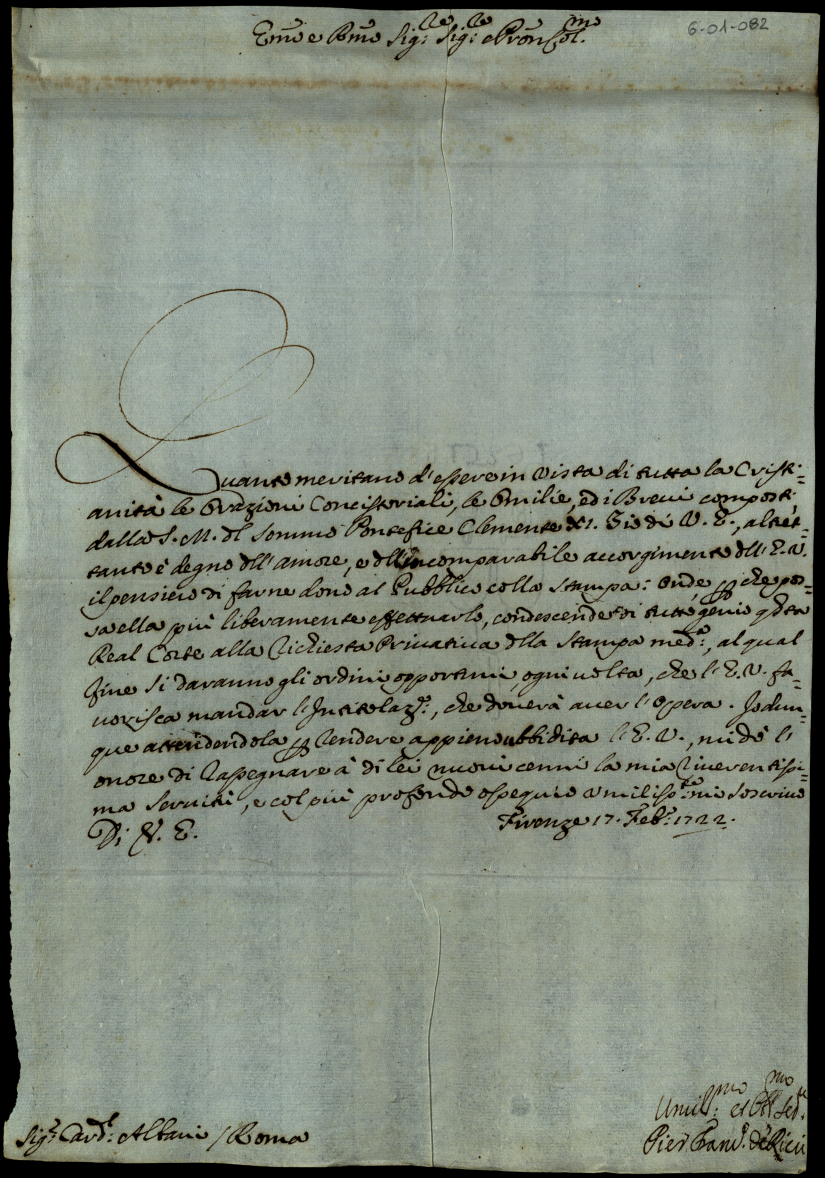 6-01-082
Emo e Rmo Sig:re Sig:re e Pron Col:mo
Quanto meritano d'essere in vista di tutta la Cristi=
anità le Orazioni Concistoriali, le Omilie, ed i Brevi composti
dalla S. M. dl Sommo Pontefice Clemente XI. Zio di V. E., altret=
tanto è degno dll'amore, e dll'incomparabile accorgimento dll'E.V.
il pensiero di farne dono al Pubblico colla stampa: onde, p che pos=
sa ella più liberamente effettuarlo, condescende di tutto genio qsta
Real Corte alla richiesta Privativa dlla stampa med:a, al qual
fine si daranno gli ordini opportuni, ogni volta, che l'E.V. fa=
vorisca mandar l'Intitolaz:e, che doverà aver l'Opera. Io dun=
que attendendola p rendere appieno ubbidita l'E.V., mi dò l'
onore di rassegnare à di lei nuovi cenni la mia riverentissi=
ma servitù, e col più profondo ossequio umiliss:te mi soscrivo
Di V. E.
Firenze 17. Feb:o 1722.
Umil:mo et Obb:mo Ser:e
Pier Fran:o de Ricci
Sig:r Card:l Albani / Roma